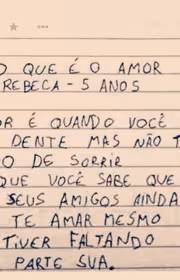 O QUE É O AMOR
REBECA - 5 ANOS
É QUANDO VOCÊ
DENTE MAS NÃO
DE SORRIR
QUE VOCÊ SABE QUE
SEUS AMIGOS AINDA
TE AMAR MESMO
TIVER FALTANDO
PARTE SUA.